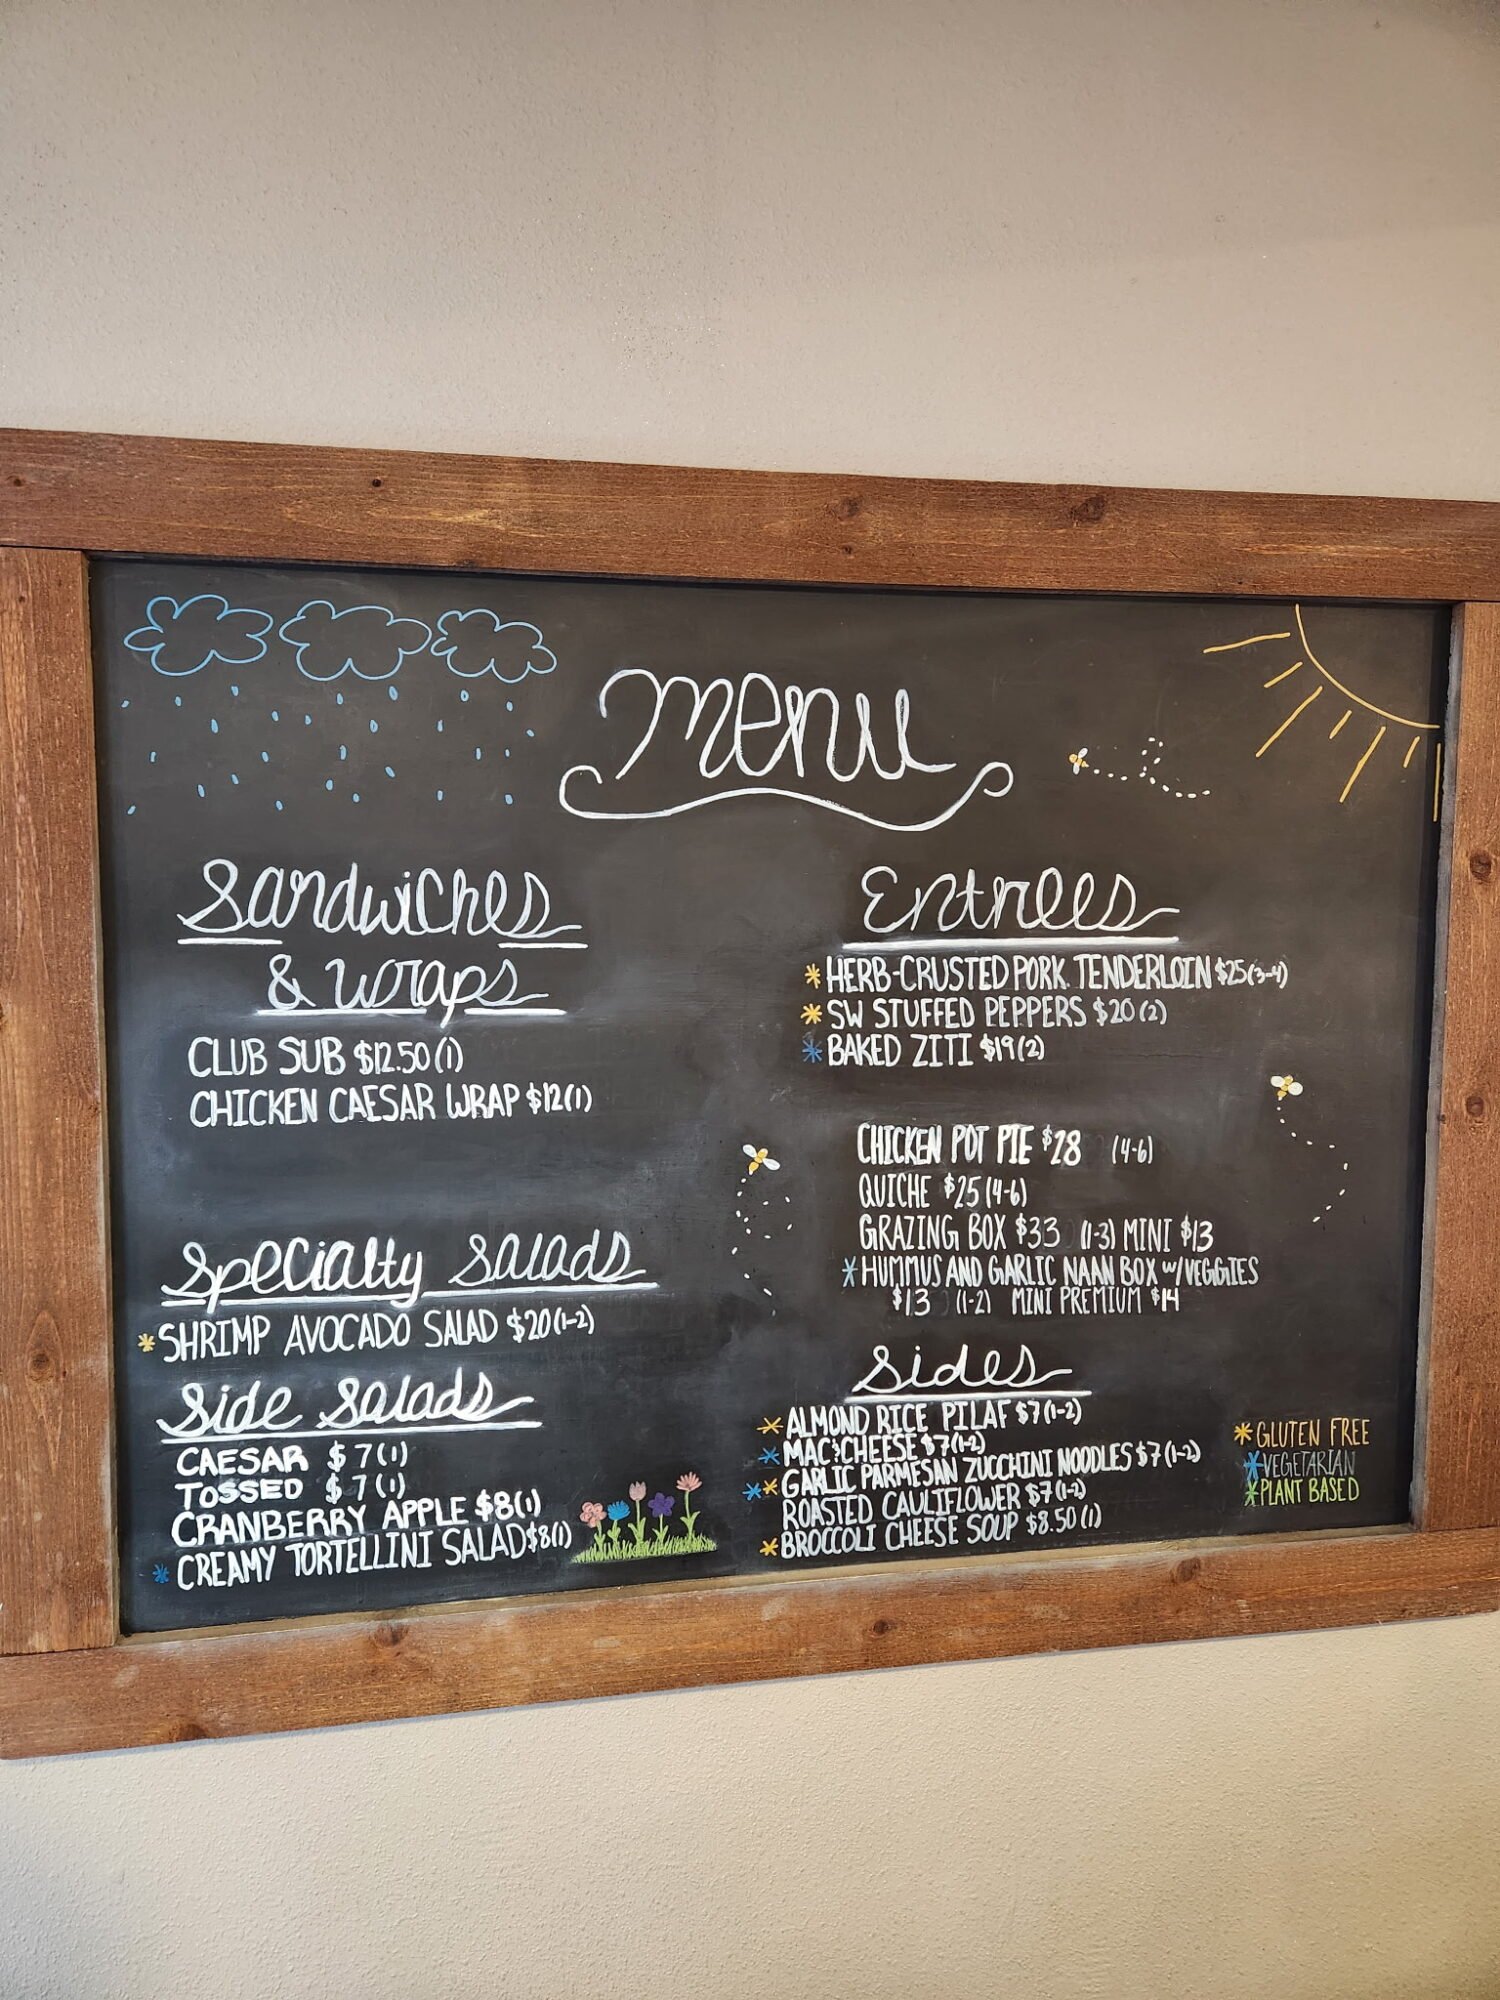 Menu
Sandwiches
& Wraps
CLUB SUB $12.50 (1)
CHICKEN CAESAR WRAP $12 (1)
Specialty Salads
* SHRIMP AVOCADO SALAD $20 (1-2)
Side Salads
CAESAR $7 (1)
TOSSED $7 (1)
CRANBERRY APPLE $8 (1)
* CREAMY TORTELLINI SALAD $8 (1)
Entrees
* HERB-CRUSTED PORK TENDERLOIN $25 (3-4)
* SW STUFFED PEPPERS $20 (2)
* BAKED ZITI $19 (2)
CHICKEN POT PIE $28 (4-6)
QUICHE $25 (4-6)
GRAZING BOX $33 (1-3) MINI $13
* HUMMUS AND GARLIC NAAN BOX w/VEGGIES
$13 (1-2) MINI PREMIUM $14
Sides
* ALMOND RICE PILAF $7 (1-2)
* MAC & CHEESE $7 (1-2)
** GARLIC PARMESAN ZUCCHINI NOODLES $7 (1-2)
ROASTED CAULIFLOWER $7 (1-2)
* BROCCOLI CHEESE SOUP $8.50 (1)
* GLUTEN FREE
* VEGETARIAN
* PLANT BASED